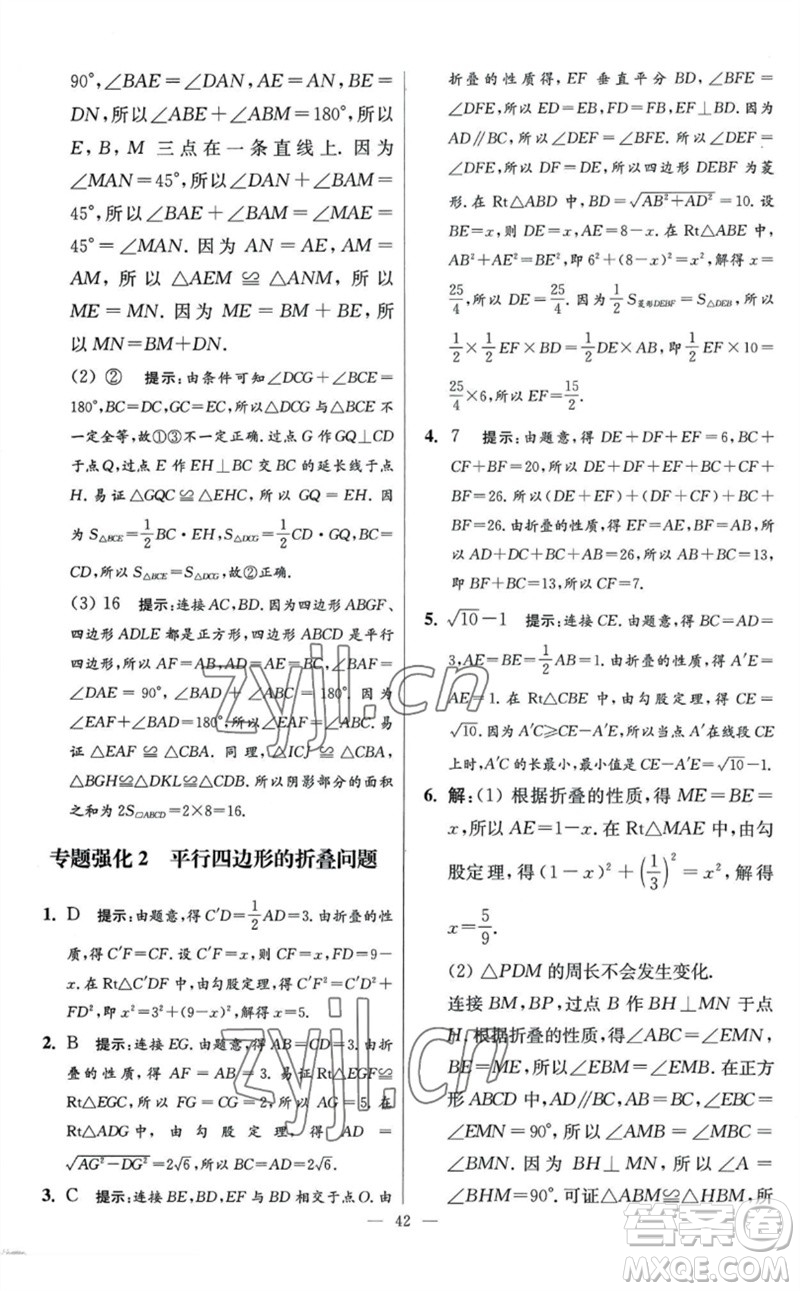 90°,∠BAE=∠DAN,AE=AN,BE=
DN,所以∠ABE+∠ABM=180°,所以
E,B,M 三点在一条直线上. 因为
∠MAN=45°,所以∠DAN+∠BAM=
45°,所以∠BAE+∠BAM=∠MAE=
45°=∠MAN. 因为 AN=AE,AM=
AM,所以 △AEM≌△ANM,所以
ME=MN. 因为 ME=BM+BE,所
以 MN=BM+DN.
(2) ② 提示:由条件可知∠DCG+∠BCE=
180°,BC=DC,GC=EC,所以△DCG与△BCE不
一定全等,故①③不一定正确. 过点 G 作 GQ⊥CD
于点 Q,过点 E 作 EH⊥BC 交 BC 的延长线于点
H. 易证△GQC≌△EHC,所以 GQ=EH. 因
为 S△BCE=1/2BC·EH,S△DCG=1/2CD·GQ,BC=
CD,所以 S△BCE=S△DCG,故②正确.
(3) 16 提示:连接 AC,BD. 因为四边形 ABGF、
四边形 ADLE 都是正方形,四边形 ABCD 是平行
四边形,所以 AF=AB,AE=AD=BC,∠BAF=
∠DAE = 90°,∠BAD + ∠ABC = 180°,所以
∠EAF+∠BAD=180°,所以∠EAF=∠ABC. 易
证 △EAF≌△CBA. 同理,△ICJ≌△CBA,
△BGH≌△DKL≌△DAB,所以阴影部分的面积
之和为 2S▱ABCD=2×8=16.
专题强化 2 平行四边形的折叠问题
1. D 提示:由题意,得 C′D=1/2AD=3. 由折叠的性
质,得 C′F=CF. 设 C′F=x,则 CF=x,FD=9-
x. 在 Rt△C′DF 中,由勾股定理,得 C′F²=C′D²+
FD²,即 x²=3²+(9-x)²,解得 x=5.
2. B 提示:连接 EG. 由题意,得 AB=CD=3. 由折
叠的性质,得 AF=AB=3. 易证 Rt△EGF≌
Rt△EGC,所以 FG=CG=2,所以 AG=5. 在
Rt△ADG 中,由勾股定理,得 AD=
√(AG²-DG²)=2√6,所以 BC=AD=2√6.
3. C 提示:连接 BE,BD,EF 与 BD 相交于点 O. 由
折叠的性质得,EF 垂直平分 BD,∠BFE=
∠DFE,所以 ED=EB,FD=FB,EF⊥BD. 因为
AD∥BC,所以∠DEF=∠BFE,所以∠DEF=
∠DFE,所以 DF=DE,所以四边形 DEBF 为菱
形. 在 Rt△ABD 中,BD=√(AB²+AD²)=10. 设
BE=x,则 DE=x,AE=8-x. 在 Rt△ABE 中,
AB²+AE²=BE²,即 6²+(8-x)²=x²,解得 x=
25/4,所以 DE=25/4. 因为1/2S菱形DEBF=S△DEB,所以
1/2×1/2EF×BD=1/2DE×AB,即1/2EF×10=
25/4×6,所以 EF=15/2.
4. 7 提示:由题意,得 DE+DF+EF=6,BC+
CF+BF=20,所以 DE+DF+EF+BC+CF+
BF=26. 所以(DE+EF)+(DF+CF)+BC+
BF=26. 由折叠的性质,得 EF=AE,BF=AB,所
以 AD+DC+BC+AB=26,所以 AB+BC=13,
即 BF+BC=13,所以 CF=7.
5. √10-1 提示:连接 CE. 由题意,得 BC=AD=
3,AE=BE=1/2AB=1. 由折叠的性质,得 A′E=
AE=1. 在 Rt△CBE 中,由勾股定理,得 CE=
√10. 因为 A′C≥CE-A′E,所以当点 A′在线段 CE
上时,A′C 的长最小,最小值是 CE-A′E=√10-1.
6. 解:(1) 根据折叠的性质,得 ME=BE=
x,所以 AE=1-x. 在 Rt△MAE 中,由勾
股定理,得(1-x)²+(1/3)²=x²,解得
x=5/9.
(2) △PDM 的周长不会发生变化.
连接 BM,BP,过点 B 作 BH⊥MN 于点
H. 根据折叠的性质,得∠ABC=∠EMN,
BE=ME,所以∠EBM=∠EMB. 在正方
形 ABCD 中,AD∥BC,∠EBC=
∠EMN=90°,所以∠AMB=∠MBC=
∠BMN. 因为 BH⊥MN,所以∠A=
∠BHM=90°. 可证△ABM≌△HBM,所
— 42 —
zyjl.cn
zyjl.cn
答案圈
MXQE.COM